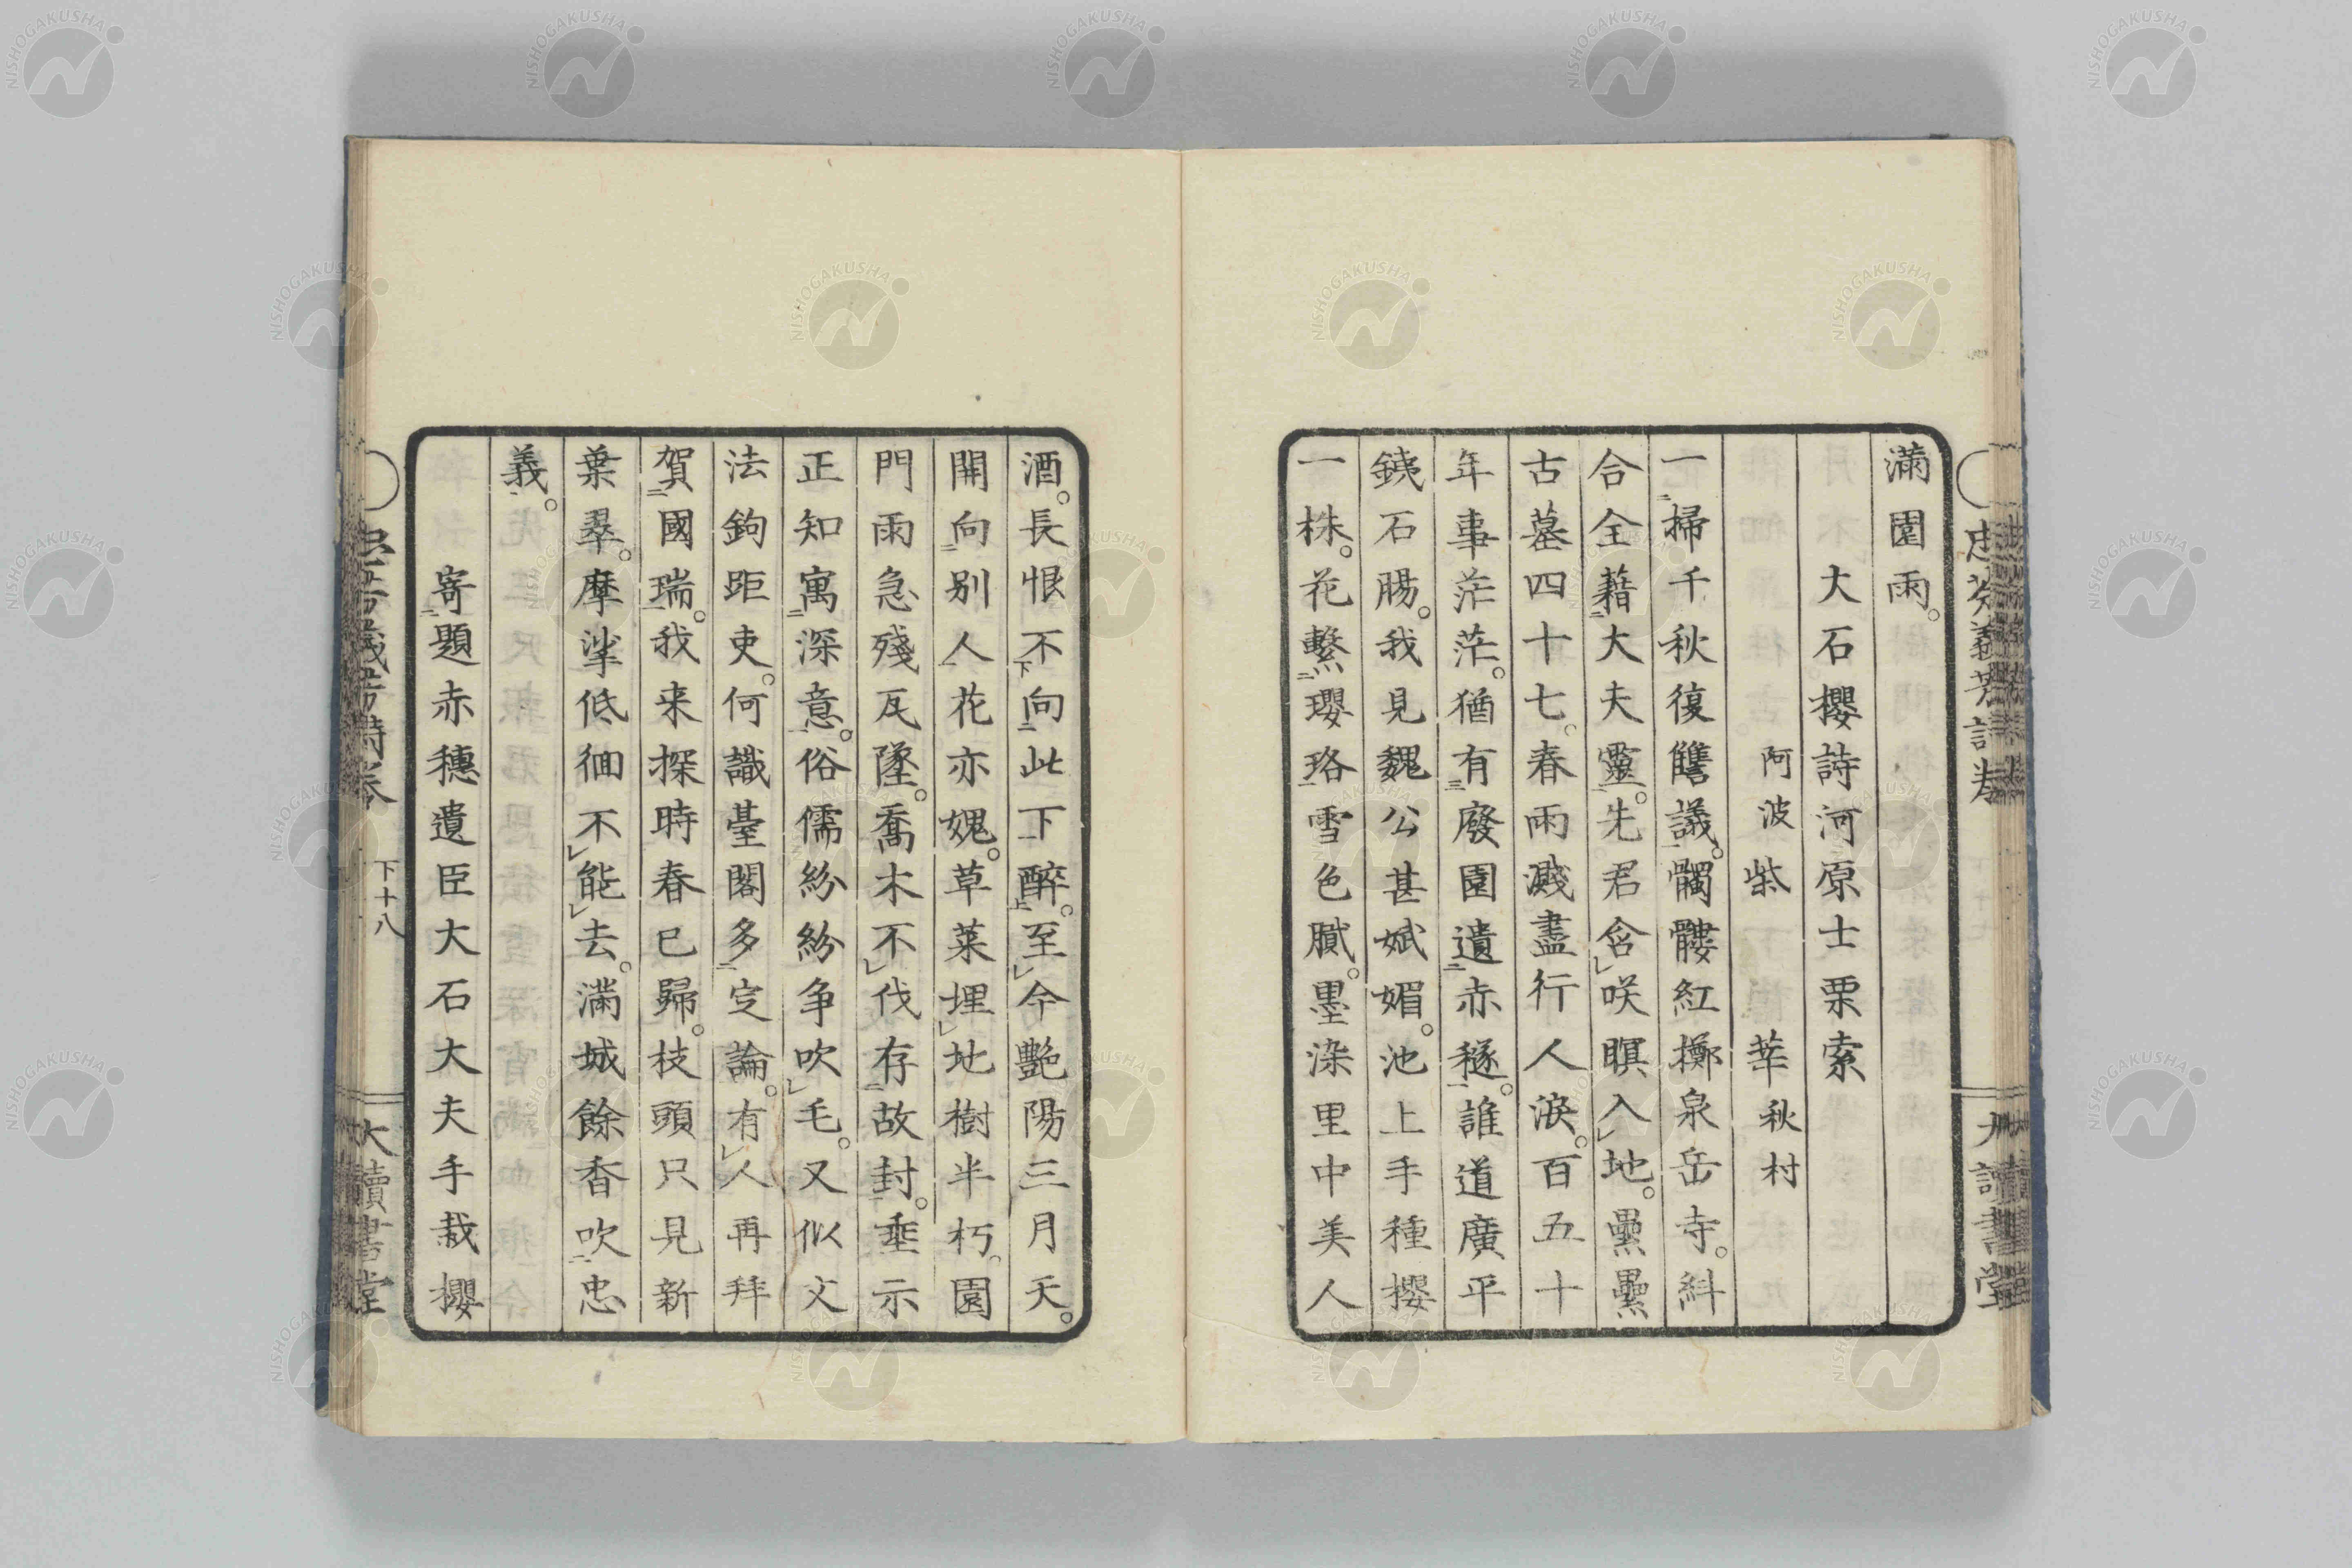 滿園雨。
大石櫻詩河原士栗索
阿波柴 莘秋村
一掃千秋復讐議。髑髏紅擲泉岳寺。糾
合全藉大夫靈。先君含咲瞑入地。纍纍
古墓四十七。春雨濺盡行人淚。百五十
年事茫茫。猶有廢園遺赤穟。誰道廣平
銕石腸。我見魏公甚娬媚。池上手種櫻
一株。花繫瓔珞雪色膩。墨染里中美人
酒。長恨不向此下醉。至今艶陽三月天。
開向別人花亦媿。草菜埋地樹半朽。園
門雨急殘瓦墜。喬木不伐存故封。垂示
正知寓深意。俗儒紛紛争吹毛。又似文
法鉤距吏。何識臺閣多定論。有人再拜
賀國瑞。我来探時春已歸。枝頭只見新
葉翠。摩挲低徊不能去。滿城餘香吹忠
義。
寄題赤穗遺臣大石大夫手栽櫻
下十八
大讀書堂
NISHOGAKUSHA